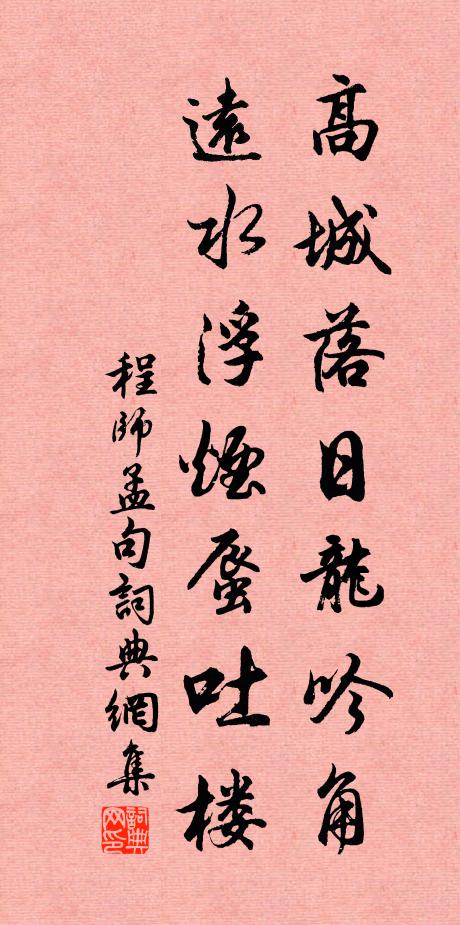 高城落日龍吟角
遠水浮煙蜃吐楼
程師孟句詞典網集
詞典网印